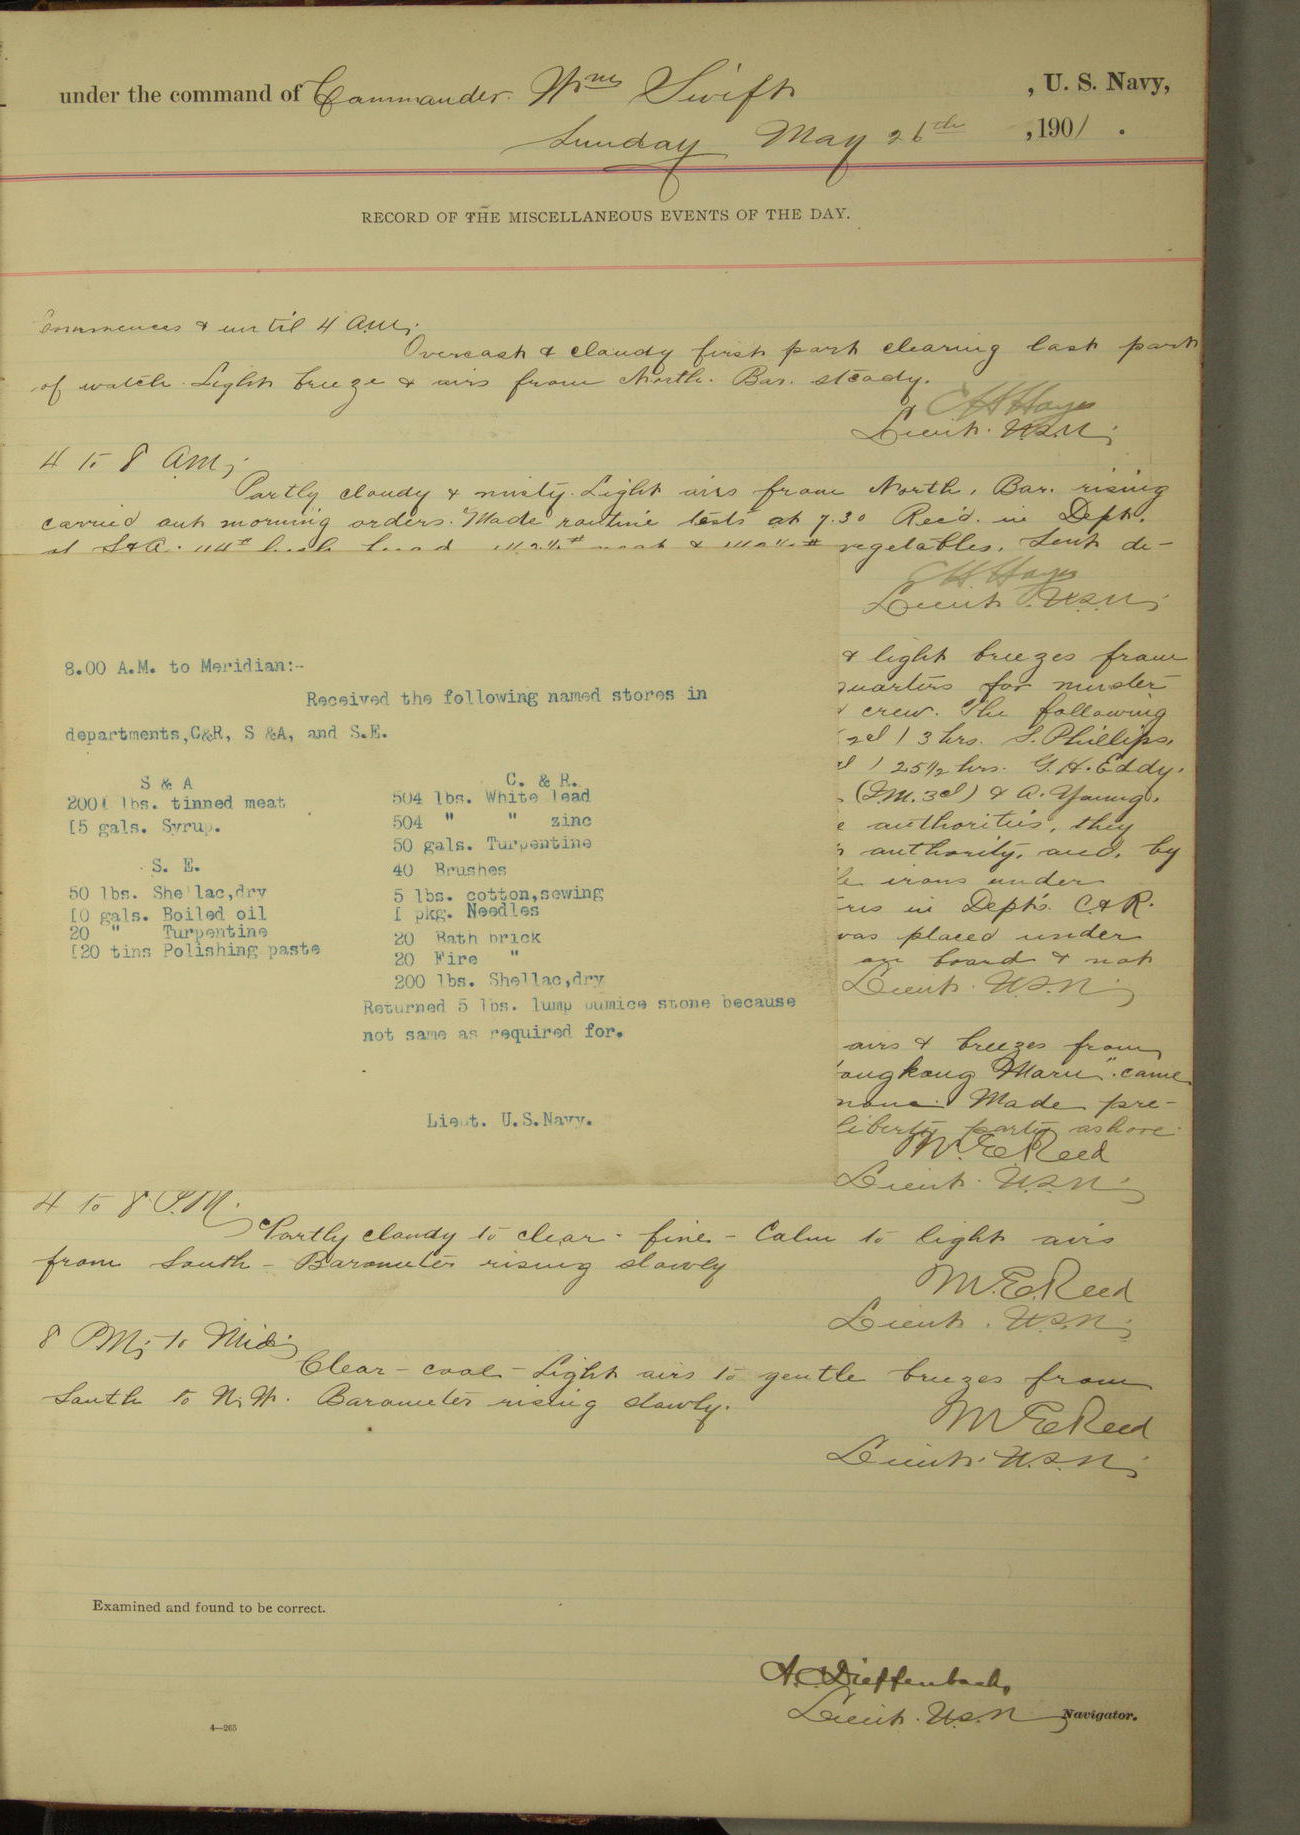 under the command of Commander Wm Swift, U. S. Navy,
Sunday May 26th, 1901.
RECORD OF THE MISCELLANEOUS EVENTS OF THE DAY.
Commences & until 4 A.M;
Overcast & cloudy first part clearing last part
of watch. Light breeze & airs from North. Bar. steady.
Lieut. U.S.N;
4 to 8 A.M;
Partly cloudy & misty. Light airs from North. Bar. rising
carried out morning orders. Made routine tests at 7.30 Rec'd. in Dept.
vegetables. Sent de-
Lieut. U.S.N;
8.00 A.M. to Meridian:-
Received the following named stores in
departments,C&R, S &A, and S.E.
S & A
lbs. tinned meat
[5 gals. Syrup.
S. E.
50 lbs. Shellac,dry
[0 gals. Boiled oil
20 " Turpentine
[20 tins Polishing paste
C. & R.
504 lbs. White lead
504 " " zinc
50 gals. Turpentine
40 Brushes
5 lbs. cotton,sewing
[ pkg. Needles
20 Bath brick
20 Fire "
200 lbs. Shellac,dry
Returned 5 lbs. lump pumice stone because
not same as required for.
Lieut. U.S.Navy.
& light breezes from
quarters for muster
crew. The following
3 hrs. S. Phillips,
25 1/2 hrs. G. H. Eddy.
& A. Young.
authorities, they
authority, and, by
irons under
in Dep'ts. C & R.
was placed under
on board & not
Lieut. U.S.N;
airs & breezes from
ongkong Maru". came
Made pre-
liberty party ashore.
M. E. Reed
Lieut. U.S.N;
4 to 8 P.M.
Partly cloudy to clear - fine - Calm to light airs
from South - Barometer rising slowly
M. E. Reed
Lieut. U.S.N;
8 P.M; to Mid;
Clear - cool - Light airs to gentle breezes from
South to N.W. Barometer rising slowly.
M E Reed
Lieut. U.S.N;
Examined and found to be correct.
A. Dieffenbach,
Lieut. U.S.N; Navigator.
4—265